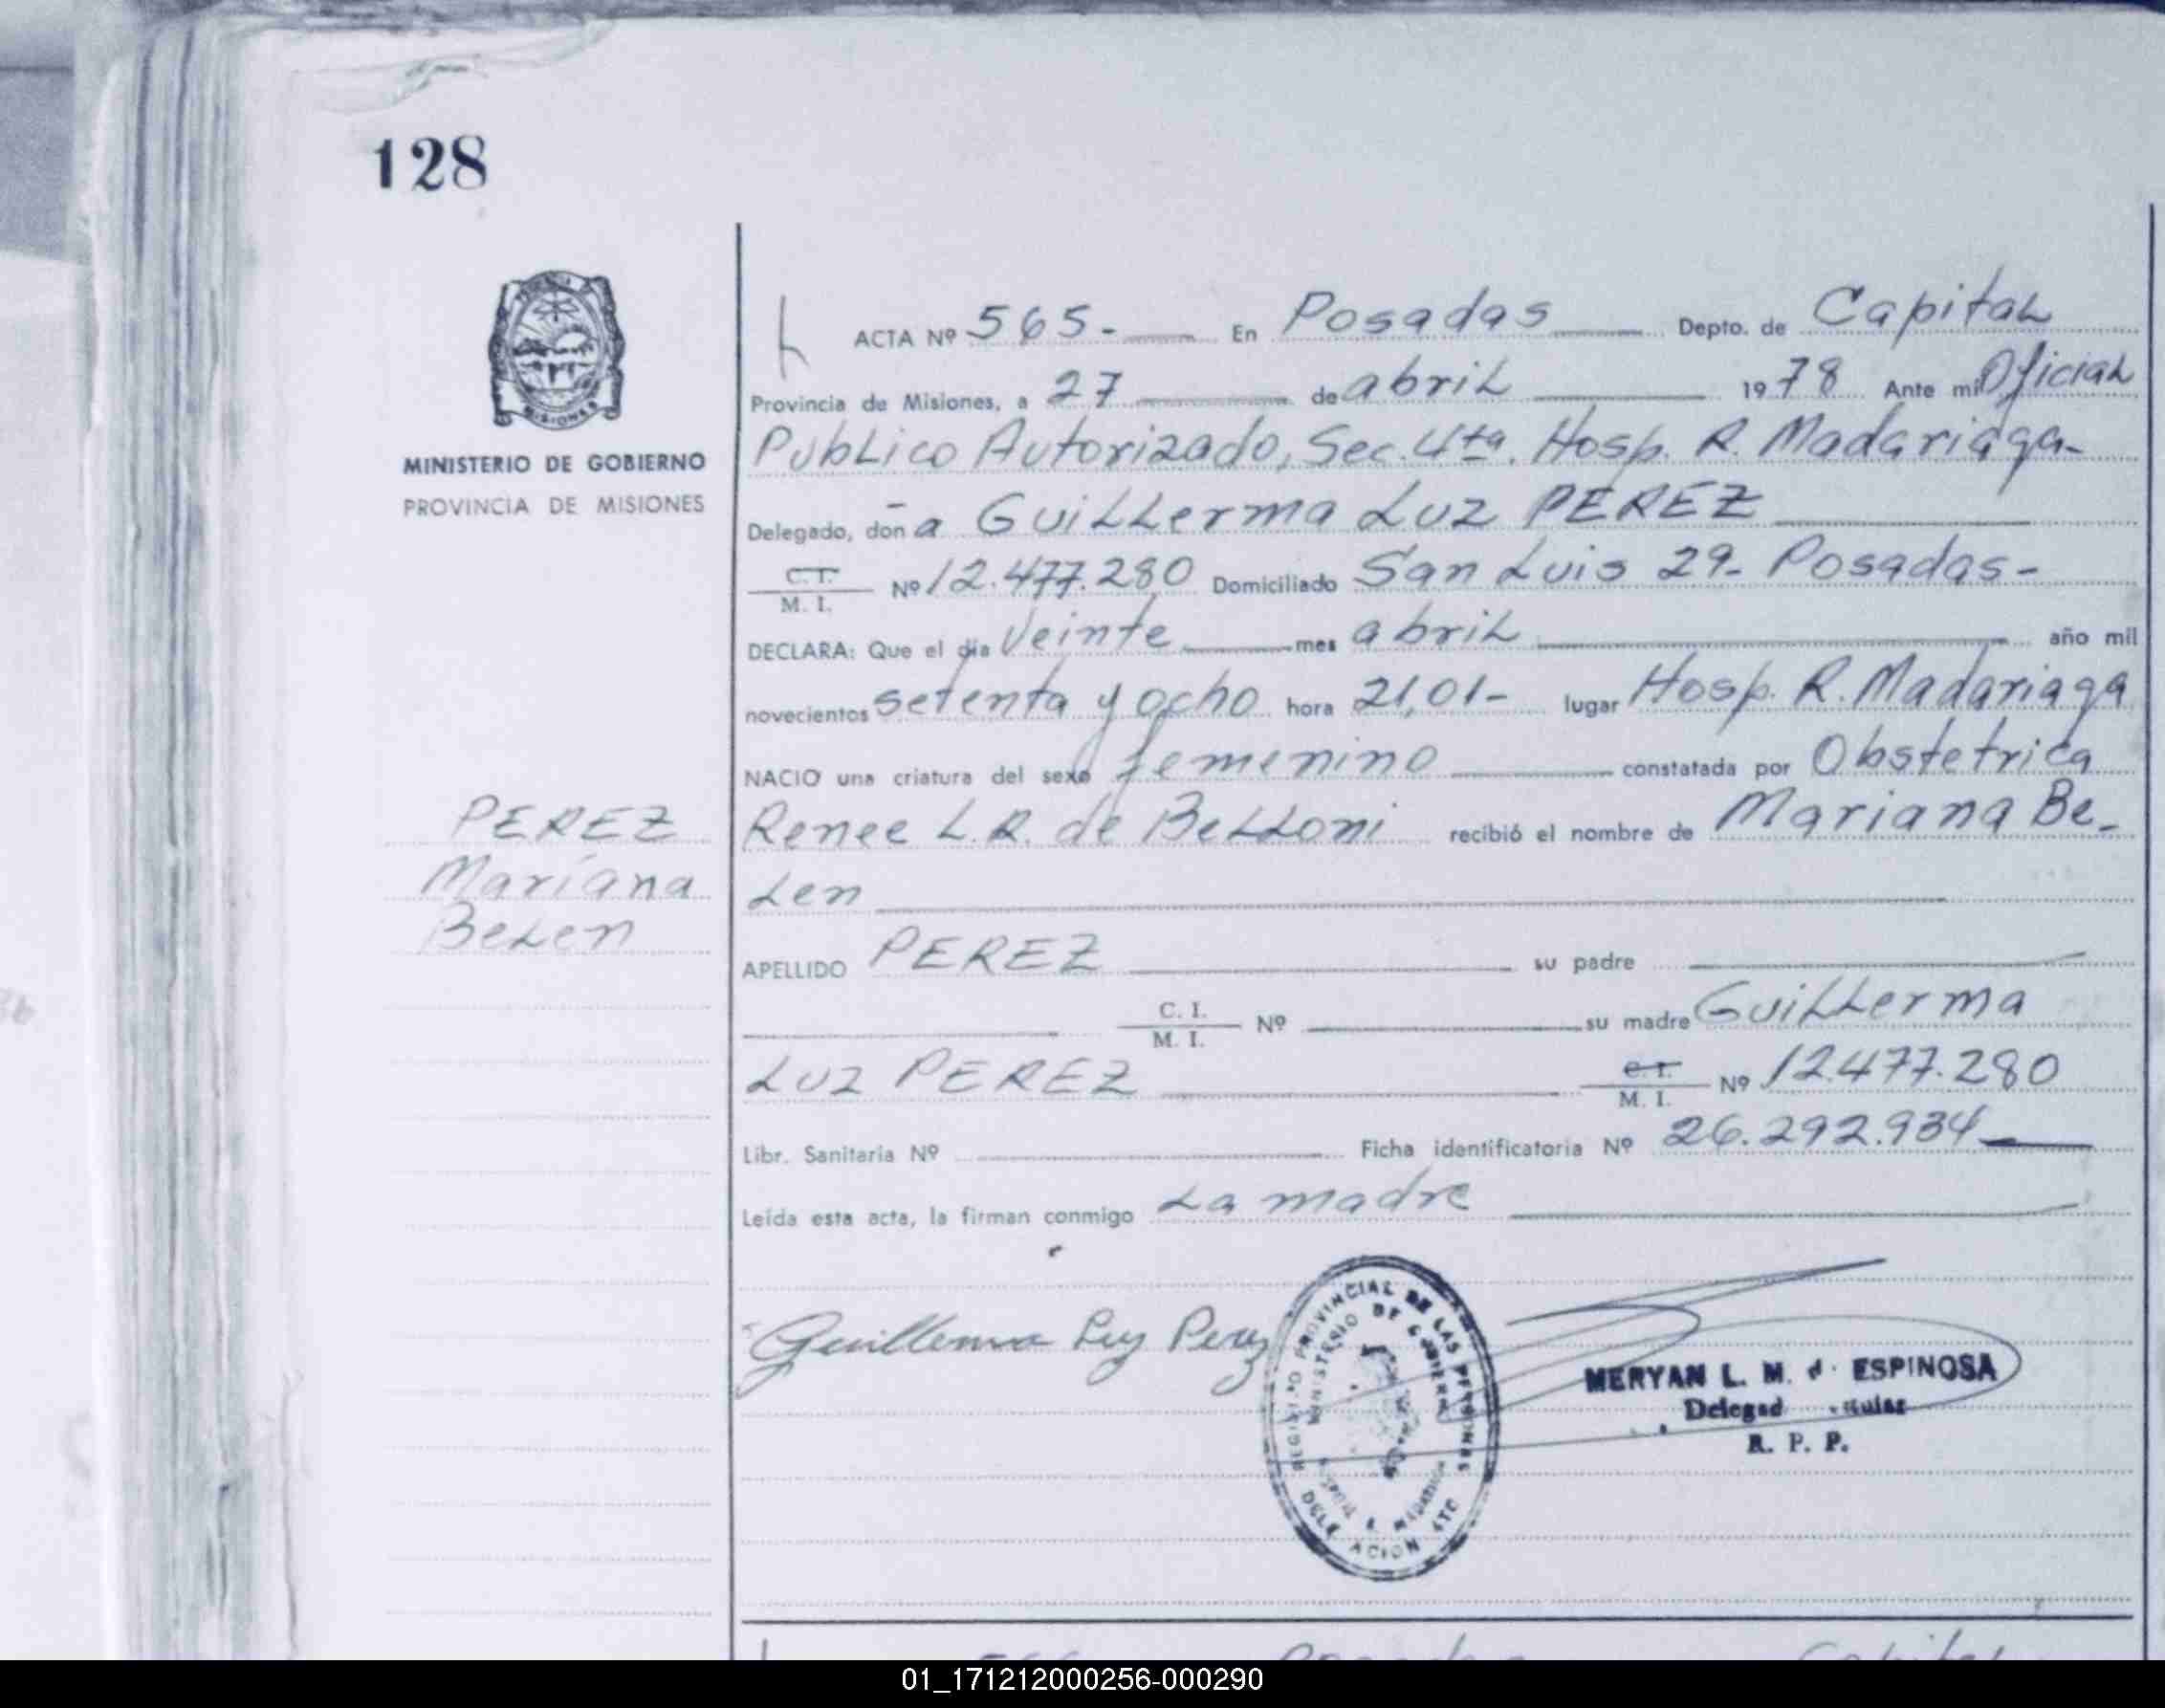 128
MINISTERIO DE GOBIERNO
PROVINCIA DE MISIONES
PEREZ
Mariana
Belen
ACTA Nº 565.- En Posadas Depto. de Capital
Provincia de Misiones, a 27 de abril 1978 Ante mi Oficial
Público Autorizado, Sec. 4ta. Hosp. R. Madariaga-
Delegado, doña Guillerma Luz PEREZ
C.I.
M. I. Nº 12.477.280 Domiciliado San Luis 29- Posadas-
DECLARA: Que el día Veinte mes abril año mil
novecientos setenta y ocho hora 21,01- lugar Hosp. R. Madariaga
NACIO una criatura del sexo femenino constatada por Obstetrica
Renee L.R. de Belloni recibió el nombre de Mariana Be-
len
APELLIDO PEREZ su padre
C. I.
M. I. Nº su madre Guillerma
Luz PEREZ C.I.
M. I. Nº 12.477.280
Libr. Sanitaria Nº Ficha identificatoria Nº 26.292.934
Leída esta acta, la firman conmigo La madre
Guillerma Luz Perez
REGISTRO PROVINCIAL DE LAS PERSONAS
MINISTERIO DE GOBIERNO
MERYAN L. M. d ESPINOSA
R. P. P.
01_171212000256-000290